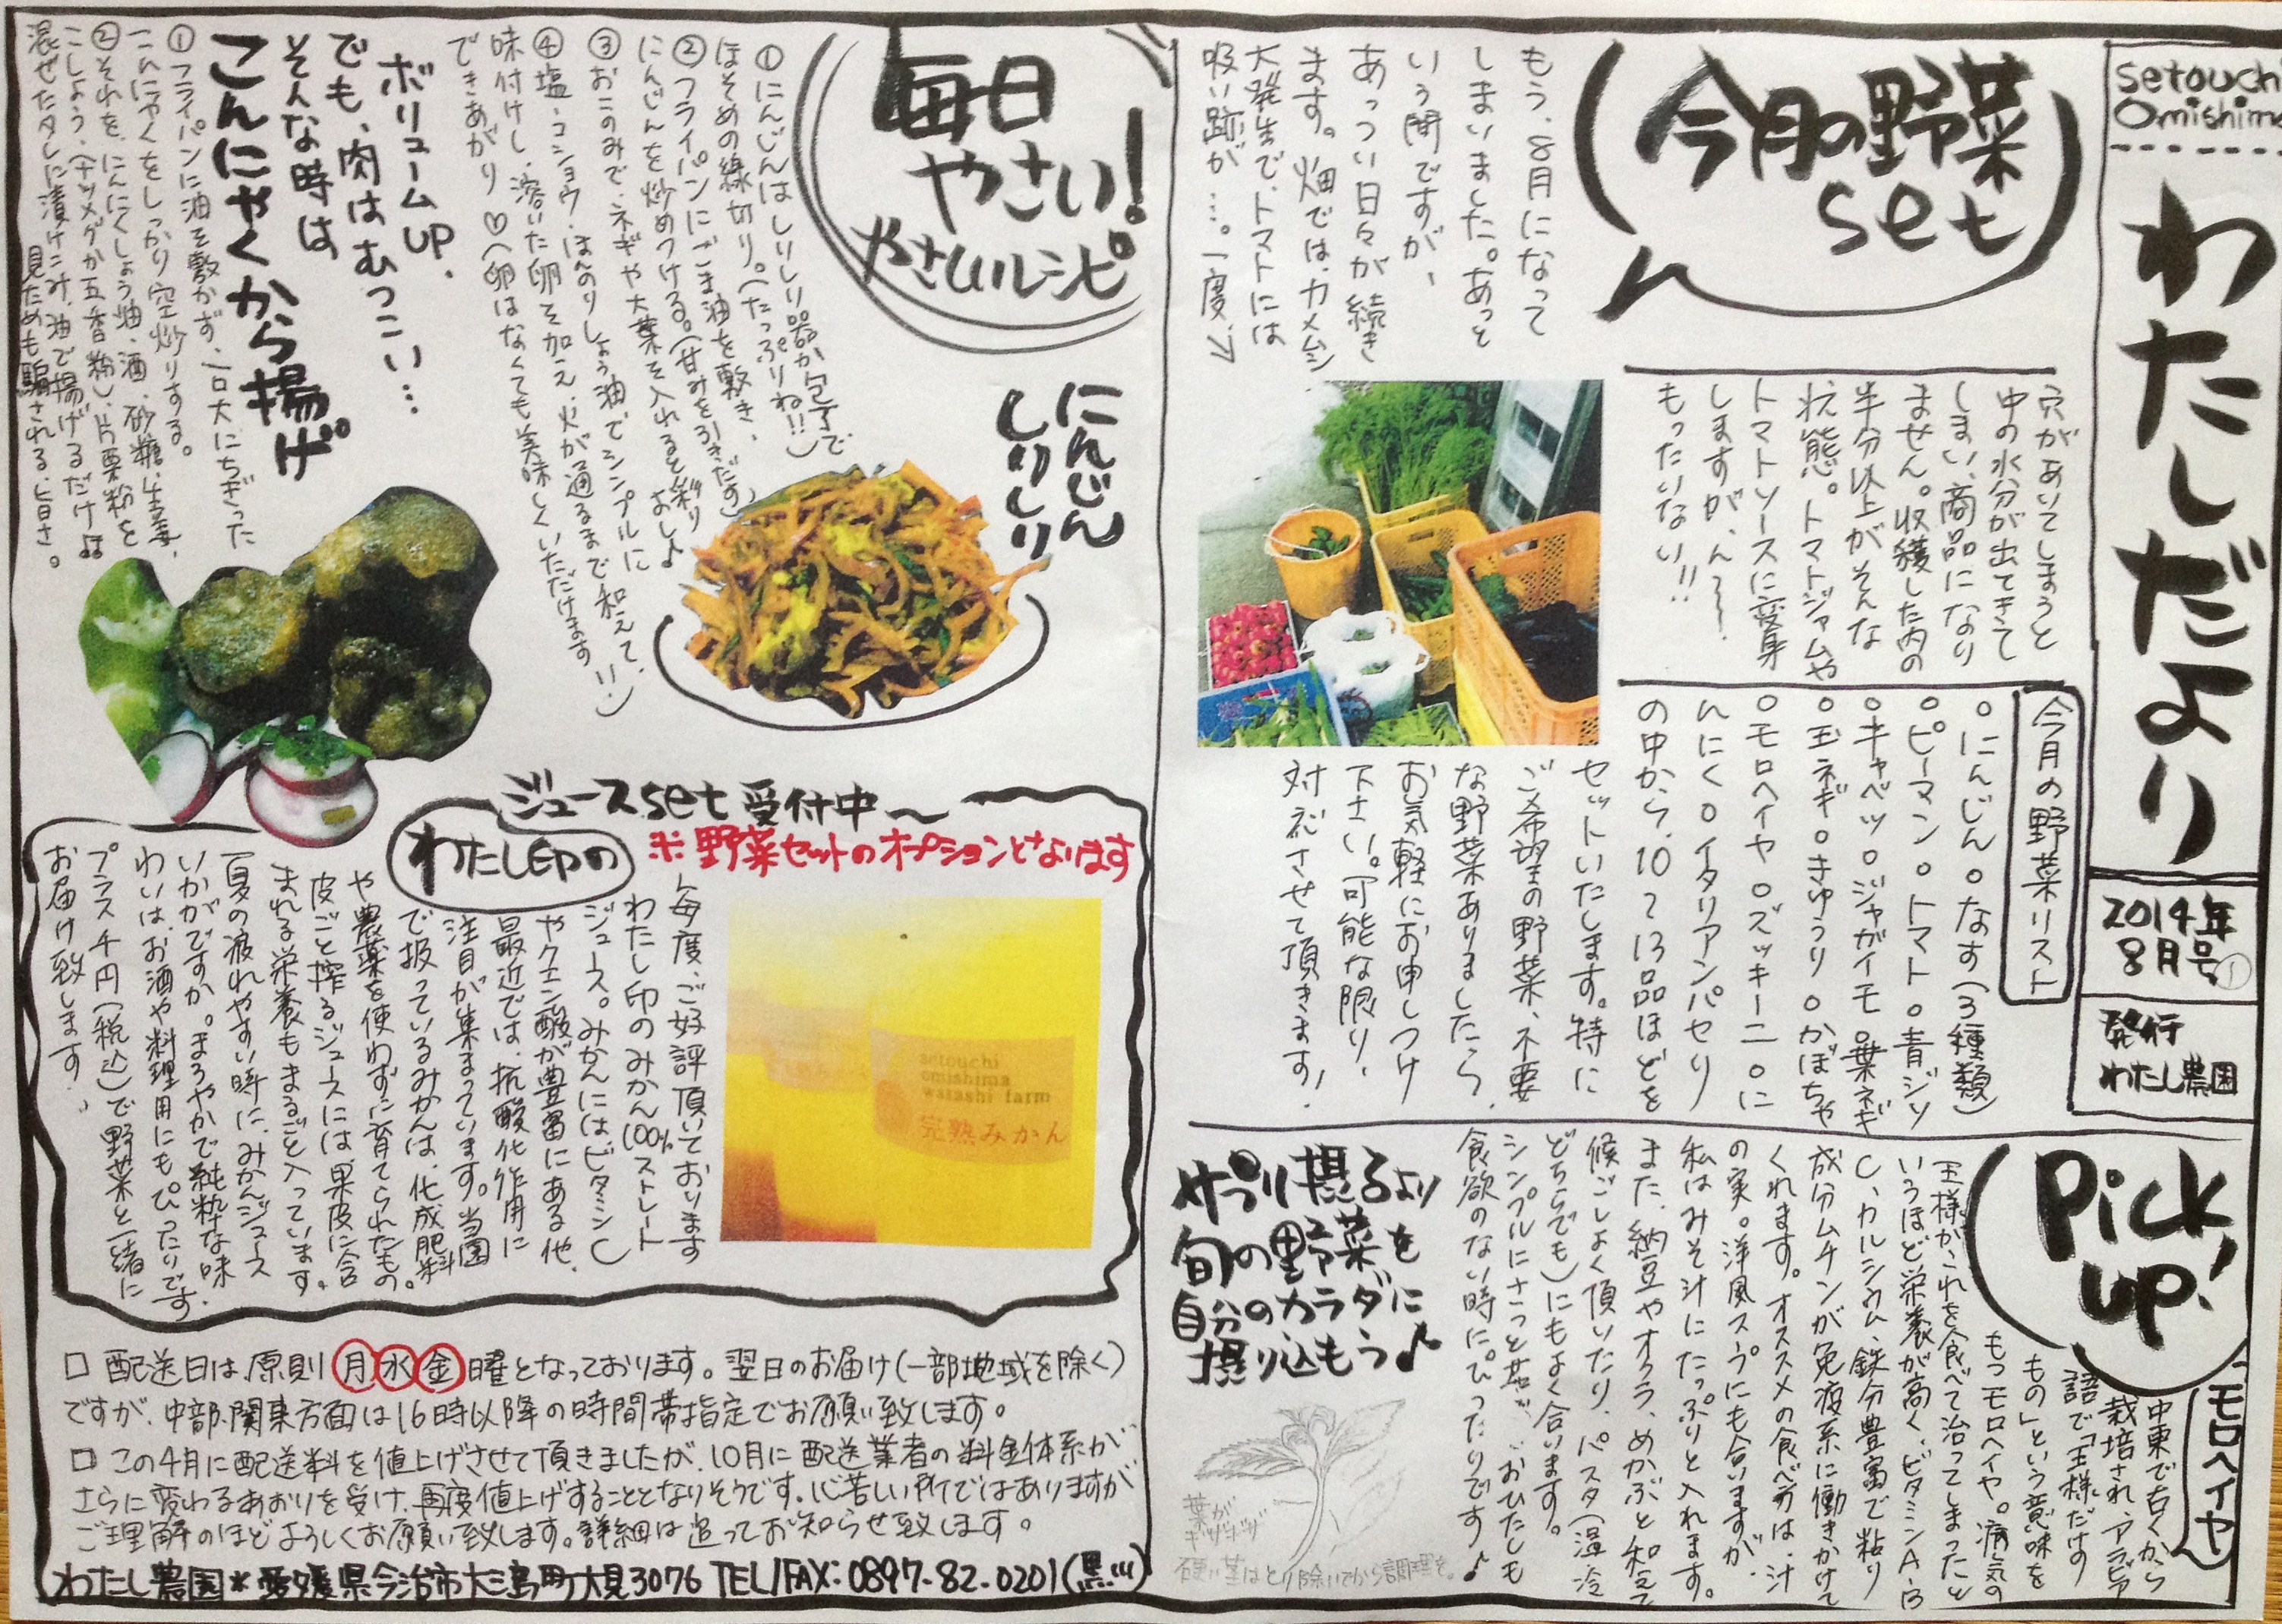 setouchi
omishima
わたしだより
2014年
8月号①
発行
わたし農園
今月の野菜
set
もう、8月になって
しまいました。あっと
いう間ですが、
あっつい日々が続き
ます。畑では、カメムシ
大発生で、トマトには
吸い跡が…。一度、↓
穴があいてしまうと
中の水分が出てきて
しまい、商品になり
ません。収穫した内の
半分以上がそんな
状態。トマトジャムや
トマトソースに変身
しますが、ん〜〜。
もったいない!!
今月の野菜リスト
○にんじん○なす(3種類)
○ピーマン○トマト○青ジソ
○キャベツ○ジャガイモ○葉ネギ
○玉ネギ○きゅうり○かぼちゃ
○モロヘイヤ○ズッキーニ○に
んにく○イタリアンパセリ
の中から、10〜13品ほどを
セットいたします。特に
ご希望の野菜、不要
な野菜ありましたら、
お気軽にお申しつけ
下さい。可能な限り、
対応させて頂きます!
Pick
up!
モロヘイヤ
中東で古くから
栽培され、アラビア
語で「王様だけの
もの」という意味を
もつモロヘイヤ。病気の
王様がこれを食べて治ってしまったと
いうほど栄養が高く、ビタミンA・B
C、カルシウム、鉄分豊富で粘り
成分ムチンが免疫系に働きかけて
くれます。オススメの食べ方は、汁
の実。洋風スープにも合いますが、
私はみそ汁にたっぷりと入れます。
また、納豆やオクラ、めかぶと和えて
喉ごしよく頂いたり、パスタ(温冷
どちらでも)にもよく合います。
シンプルにさっと茹で、おひたしも
食欲のない時にぴったりです♪
サプリ摂るより
旬の野菜を
自分のカラダに
摂り込もう♪
葉が
ギザギザ
硬い茎はとり除いてから調理を。
毎日
やさい!
やさいレシピ
にんじん
しりしり
①にんじんはしりしり器か包丁で
ほそめの線切り。(たっぷりね!!)
②フライパンにごま油を敷き、
にんじんを炒めつける。(甘みを引きだす)
③おこのみで、ネギや大葉を入れると彩りよし♪
④塩・コショウ・ほんのりしょう油でシンプルに
味付けし、溶いた卵を加え、火が通るまで和えて、
できあがり♡(卵はなくても美味しくいただけます)
ボリュームup.
でも、肉はむつこい…
そんな時は
こんにゃくから揚げ
①フライパンに油を敷かず、一口大にちぎった
こんにゃくをしっかり空炒りする。
②それを、にんにくしょう油、酒、砂糖、生姜、
こしょう、(ナツメグか五香粉)、片栗粉を
混ぜたタレに漬けこみ、油で揚げるだけ!!
見ためも騙される、旨さ。
ジュースset 受付中〜
わたし印の
※野菜セットのオプションとなります
setouchi
omishima
watashi farm
完熟みかん
毎度、ご好評頂いております
わたし印のみかん100%ストレート
ジュース。みかんには、ビタミンC
やクエン酸が豊富にある他、
最近では、抗酸化作用に
注目が集まっています。当園
で扱っているみかんは、化成肥料
や農薬を使わずに育てられたもの。
皮ごと搾るジュースには、果皮に含
まれる栄養もまるごと入っています。
夏の疲れやすい時に、みかんジュース
いかがですか。まろやかで純粋な味
わいは、お酒や料理用にもぴったりです。
プラス千円(税込)で野菜と一緒に
お届け致します。
□ 配送日は、原則 月 水 金 曜となっております。翌日のお届け(一部地域を除く)
ですが、中部、関東方面は16時以降の時間帯指定でお願い致します。
□ この4月に配送料を値上げさせて頂きましたが、10月に配送業者の料金体系が
さらに変わるあおりを受け、再度値上げすることとなりそうです。心苦しい所ではありますが
ご理解のほどよろしくお願い致します。詳細は追ってお知らせ致します。
わたし農園＊愛媛県今治市大三島町大見3076 TEL/FAX:0897-82-0201